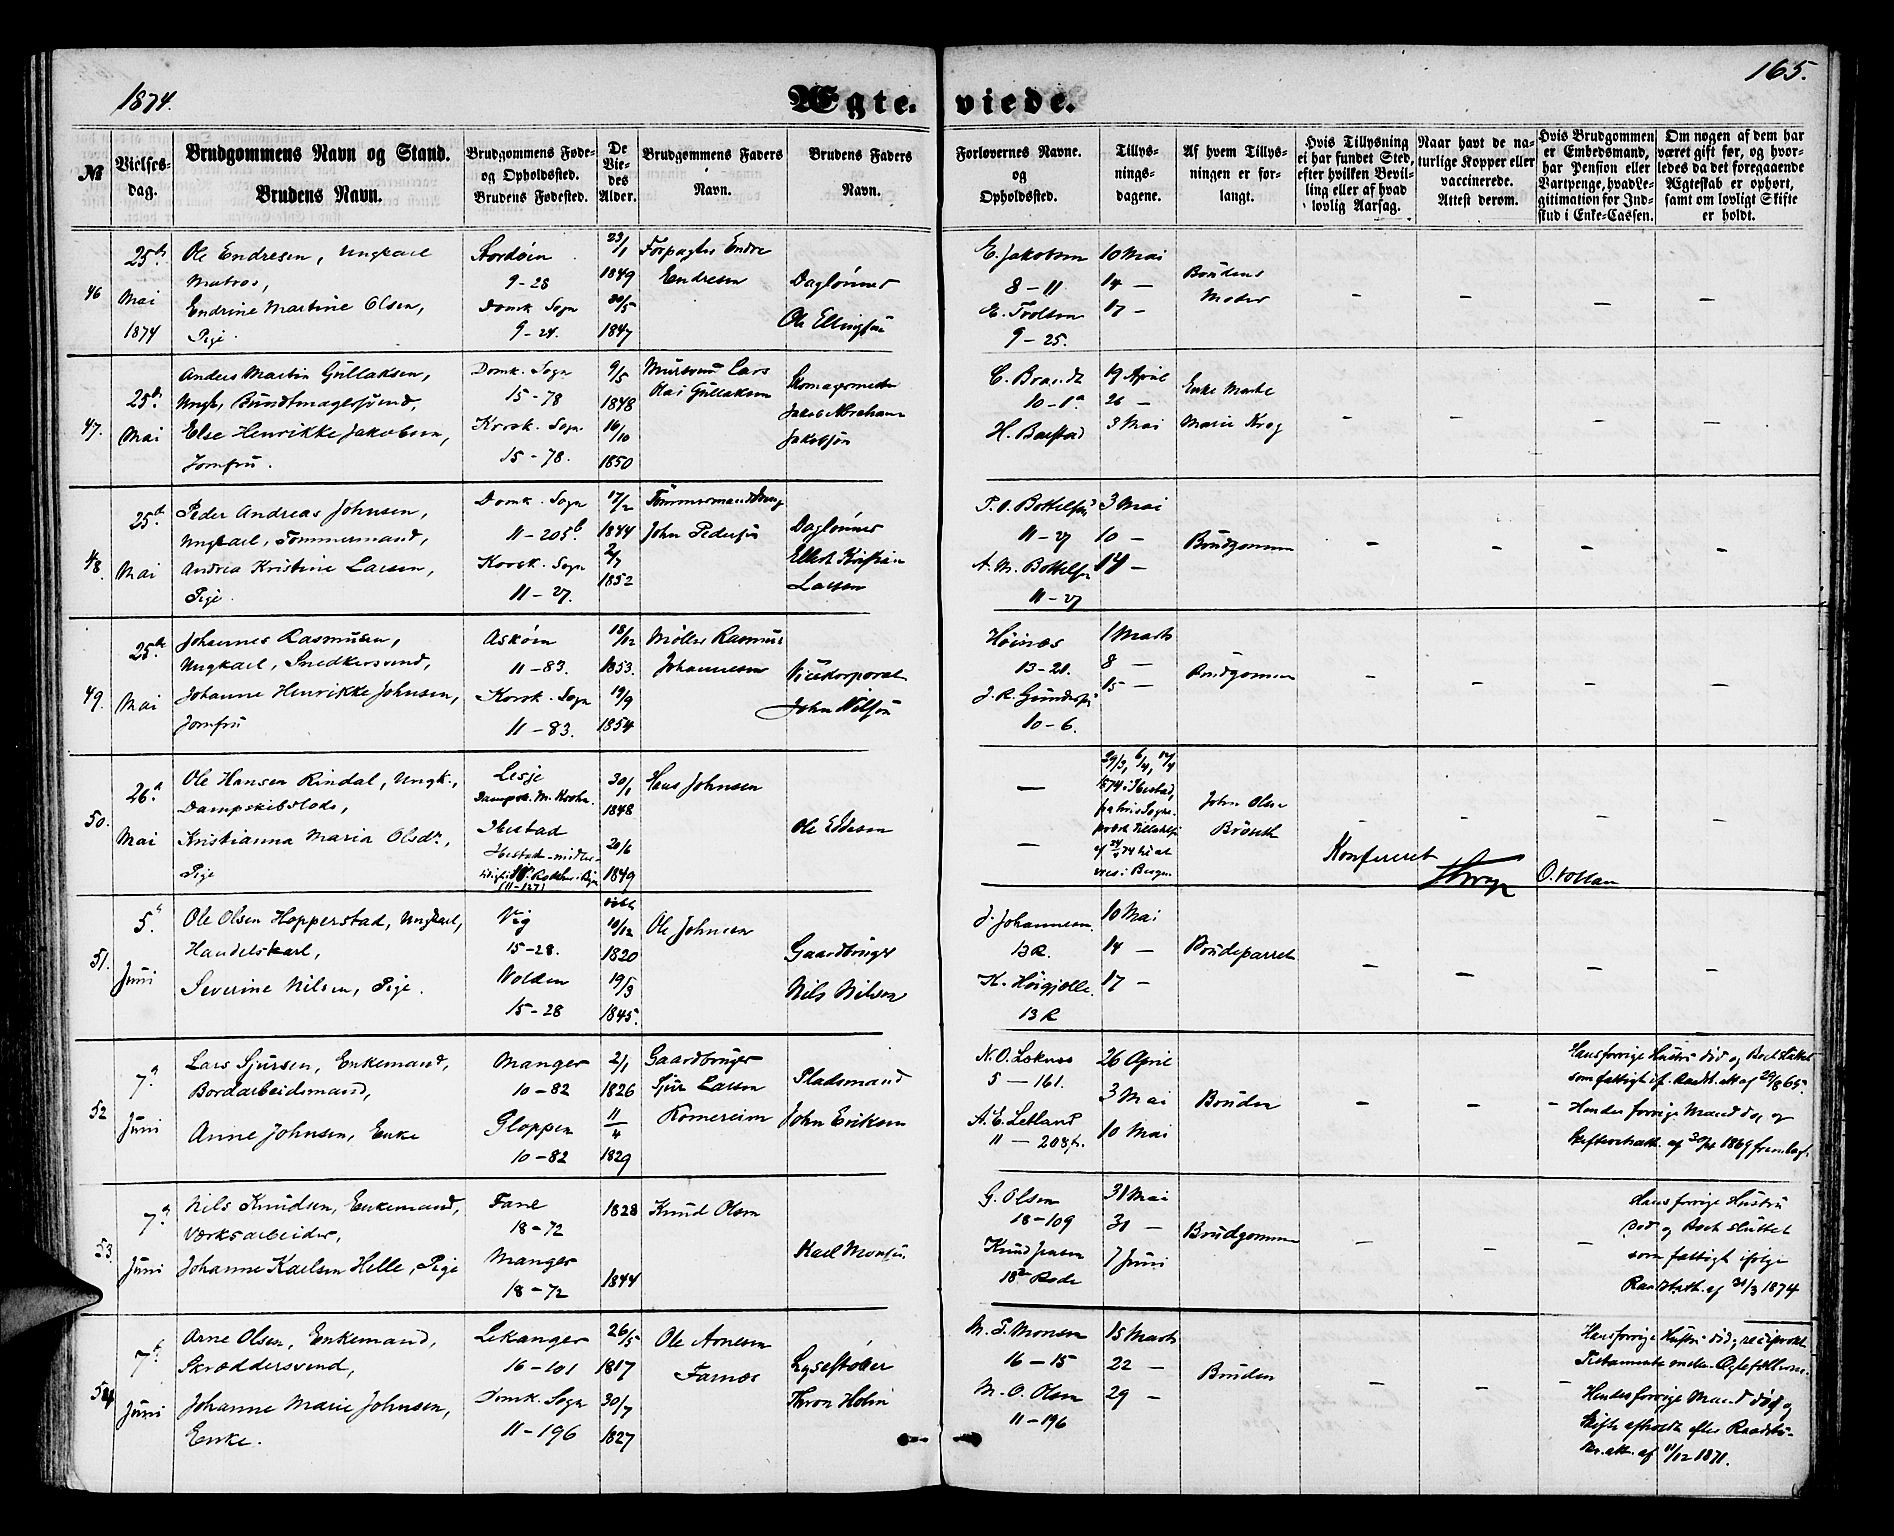 1874.
Ægte-viede.
165.
No
Vielses-
dag.
Brudgommens Navn og Stand.
Brudens Navn.
Brudgommens Føde-
og Opholdssted.
Brudens Fødested.
De
Vie-
des
Alder.
Brudgommens Faders
Navn.
Brudens Faders
Navn.
Forlovernes Navne.
og
Opholdssted.
Tillys-
nings-
dagene.
Af hvem Tillys-
ningen er for-
langt.
Hvis Tillysning
ei har fundet Sted,
efter hvilken Bevil-
ling eller af hvad
lovlig Aarsag.
Naar havt de na-
turlige Kopper eller
vaccinerede.
Attest derom.
Hvis Brudgommen
er Embedsmand,
har Pension eller
Vartpenge, hvad Le-
gitimation for Ind-
skud i Enke-Cassen.
Om nogen af dem har
været gift før, og hvor-
ledes da det foregaaende
Ægteskab er ophørt,
samt om lovligt Skifte
er holdt.
46
25de
Mai
1874
Ole Endresen, Ungkarl
Matros,
Endrine Martine Olsen,
Pige.
Stordøen
9-28
Domk. Sogn
9-24.
23/1
1849
30/5
1847
Forpagter Endre
Endresen
Daglønner
Ole Ellingsen
E. Jakobsen
8-11
E. Troelsen
9-25.
10 Mai
14 —
17 —
Brudens
Moder
47.
25de
Mai
Anders Martin Gullaksen,
Ungk, Bundtmagersvend,
Else Henrikke Jakobsen,
Jomfru.
Domk. Sogn
15-78
Korsk. Sogn
15-78.
9/5
1848
16/10
1850
Mursvend Lars
Gullaksen
Skomagermester
Jakob Abraham
Jakobsen
C. Brandt
10-1a
H. Baestad
19 April
26 —
3 Mai
Enke
Marie Krog
48.
25de
Mai
Peder Andreas Johnsen,
Ungkarl, Tømmermand,
Andrea Kristine Larsen,
Pige.
Domk. Sogn
11-205b
Korsk. Sogn
11-27.
17/2
1844
2/7
1852
Tømmermand
John Pedersen
Daglønner
Kristian
Larsen
T. O. Bottelsen
11-27
A. M. Bottelsen
11-27
3 Mai
10 —
14 —
Brudgommen
49.
25de
Mai
Johannes Rasmusen,
Ungkarl, Snedkersvend,
Johanne Henrikke Johnsen,
Jomfru
Askøen
11-83.
Korsk. Sogn
11-83.
18/12
1853.
19/9
1854
Møller Rasmus
Johannesen
Vicekorporal
John Nilsen
Høinæs
13-20.
J. R. Gundersen
10-6.
1 Marts
8 —
15 —
Brudgommen
50.
26de
Mai
Ole Hansen Rindal, Ungk.,
Dampskibslods,
Kristianna Maria Olsdr,
Pige
Lesje
Ibestad
(11-127)
30/1
1848
20/6
1849
Hans Johnsen
Ole Edesen
29/3, 6/4, 12/4
1874 i Ibestad,
i Bergen
John Olsen
Konfereret
O. Vollan
51.
5te
Juni
Ole Olsen Hopperstad, Ungkarl,
Handelskarl,
Severine Nilsen, Pige.
Vig
15-28.
Volden
15-28
10/12
1820
19/3
1845.
Ole Johnsen
Gaardbruger
Nils Nilsen
J. Johannesen
13 R.
K. Høigjelle.
13 R
10 Mai
14 —
17 —
Brudeparret
52
7de
Juni
Lars Sjursen, Enkemand,
Bordarbeidsmand,
Anne Johnsen, Enke
Manger
10-82
Gloppen
10-82
2/1
1826
11/4
1829
Gaardbruger
Sjur Larsen
Romereim
Pladsmand
John Eriksen
N. O. Loknæs
5 — 161.
A. E. Letland
11 — 208b.
26 April
3 Mai
10 Mai
Bruden
Hans forrige Hustru død og Boet sluttet
som fattigt if. Raadst. att. af 29/8 65.
Hendes forrige Mand død, og
Skifteretsatt. af 30/4 1869 fremlagt.
53
7de
Juni
Nils Knudsen, Enkemand,
Værksarbeider,
Johanne Karlsen Helle, Pige
Fane
18-72
Manger
18-72
1828
1844
Knud Olsen
Karl Monsen
G. Olsen
18-109
Knud Jensen
18de Rode
31 Mai
31 —
7 Juni
Brudgommen
Hans forrige Hustru
død og Boet sluttet
som fattigt ifølge
Raadst. att. af 31/3 1874
54
7de
Juni
Arne Olsen, Enkemand,
Skræddersvend,
Johanne Marie Johnsen,
Enke.
Lekanger
16-101
Domk. Sogn
11-196
26/5
1817
30/7
1827
Ole Arnesen
Farnæs
Lysestøber
Thron Holm
M. T. Monsen
16-15
M. O. Olsen
11-196
15 Marts
22 —
29 —
Bruden
Hans forrige Hustru død; reciprokt
Testamente mellem Ægtefolkene.
Hendes forrige Mand død og
Skifte afholdt efter Raadstu-
att. af 11/12 1871.